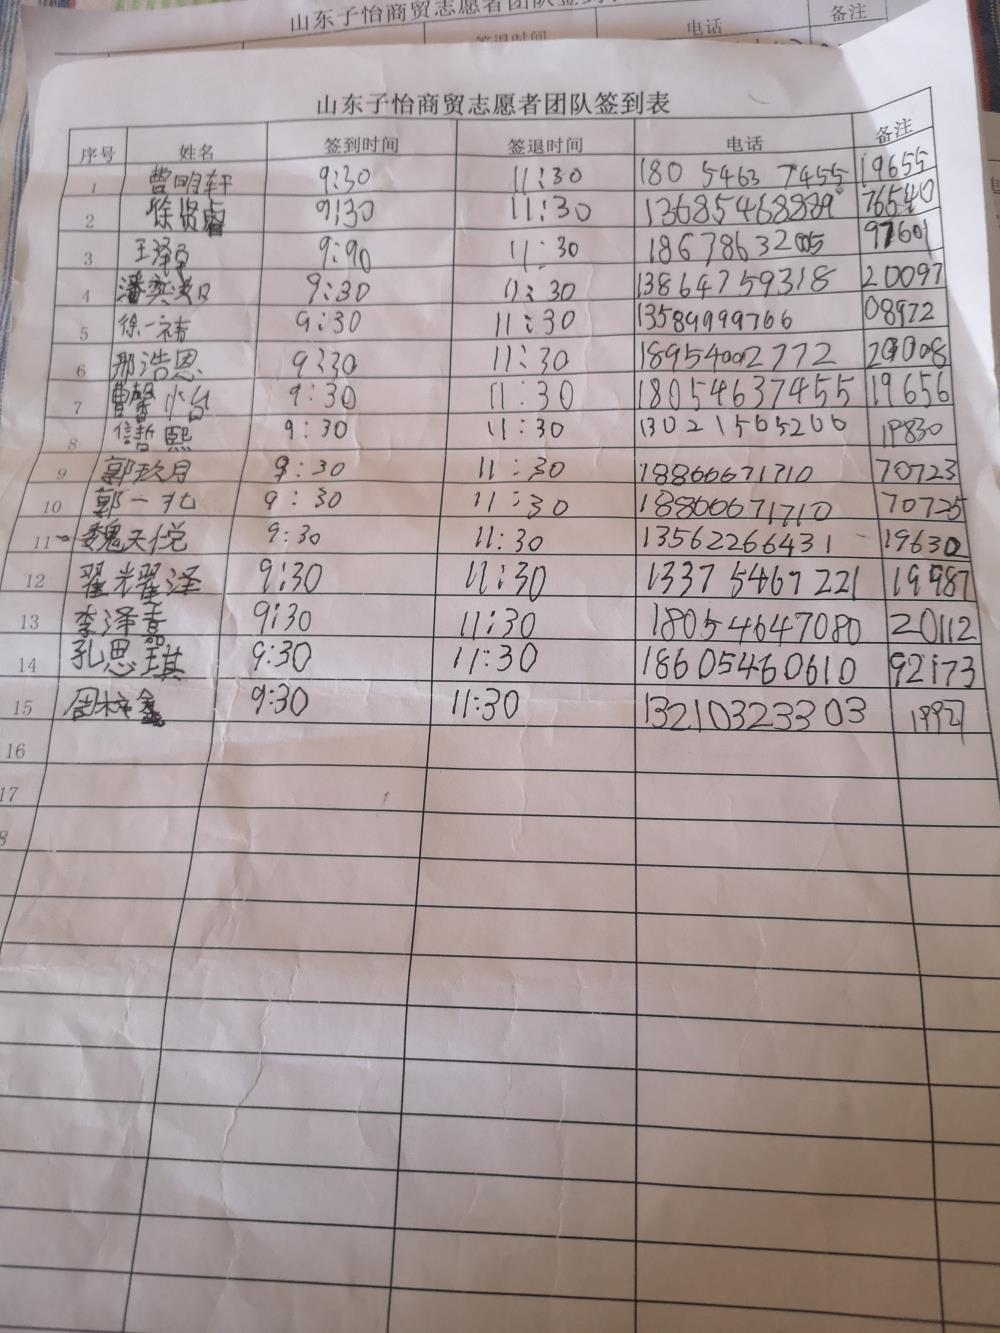 山东子怡商贸志愿者团队签到
备注
签退时间 电话
山东子怡商贸志愿者团队签到表
序号 姓名 签到时间 签退时间 电话 备注
1 曹明轩 9:30 11:30 180 5463 7455 19655
2 徐贤睿 9:30 11:30 13685468889 76540
3 王泽 9:90 11:30 18678632005 97601
4 潘奕 9:30 11:30 13864759318 20097
5 徐一 9:30 11:30 13589999766 08972
6 邢浩恩 9:30 11:30 18954002772
7 曹馨 9:30 11:30 18054637455 19656
8 信哲熙 9:30 11:30 13021565206 19830
9 郭玖月 9:30 11:30 18866671710 70723
10 郭一凡 9:30 11:30 18866671710 70725
11 魏天悦 9:30 11:30 13562266431 19630
12 翟光耀泽 9:30 11:30 13375467221 19987
13 李泽嘉 9:30 11:30 18054647080 20112
14 孔思琪 9:30 11:30 18605460610 92173
15 周梓鑫 9:30 11:30 13210323303 19927
16
17
8